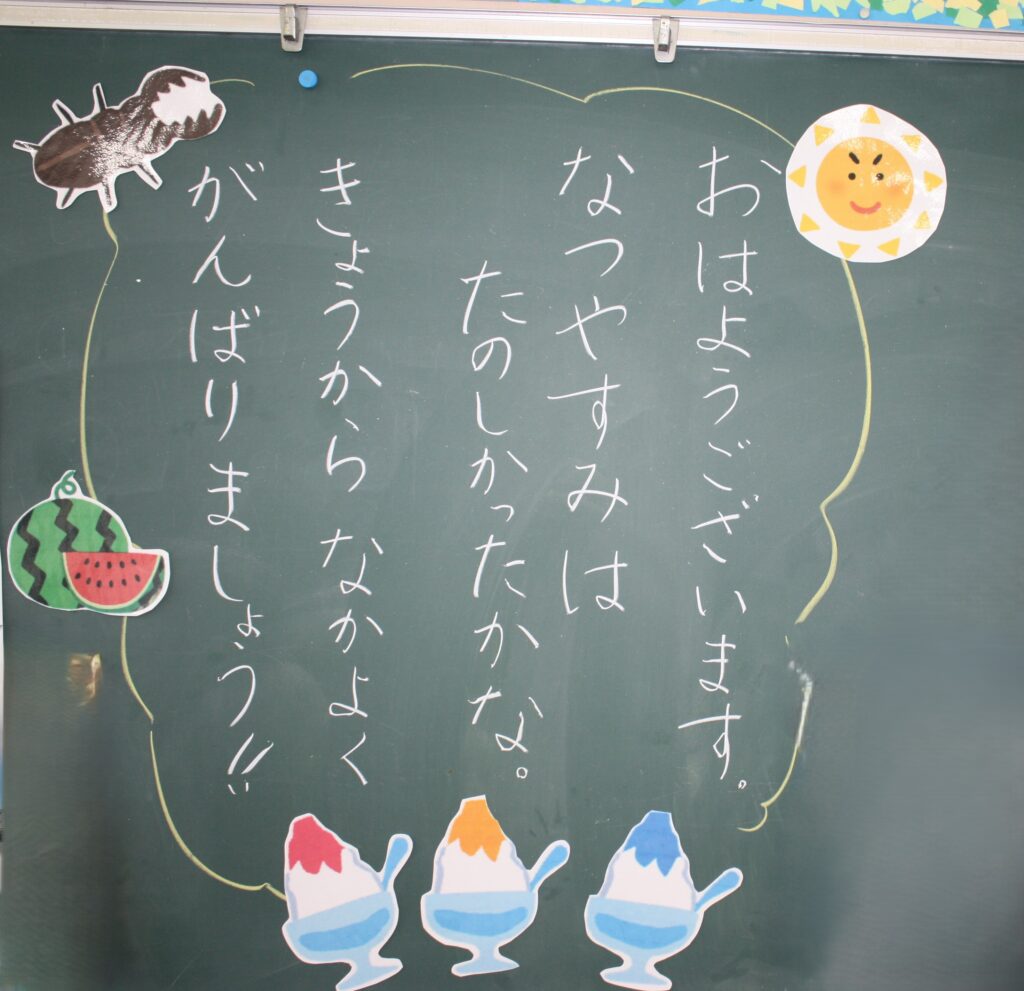 おはようございます。
なつやすみは
たのしかったかな。
きょうから なかよく
がんばりましょう!!